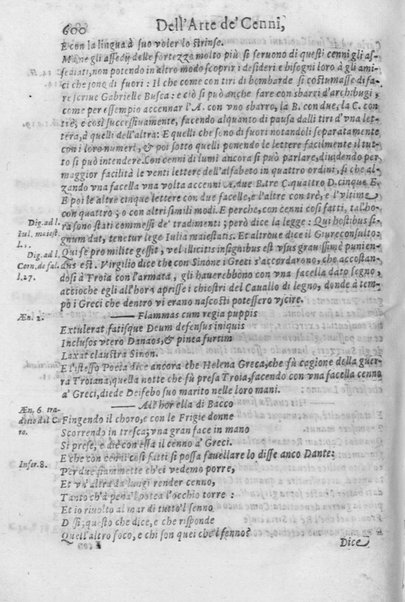 600
Dell'Arte de' Cenni,
E con la lingua à suo voler lo strinse.
Ma ne gli assedij delle fortezza molto più si seruono di questi cenni gli as-
sediati, non potendo in altro modo scoprir i desideri e bisogni loro à gli ami-
ci che sono di fuori: Il che come con tiri di bombarde si costumasse di fa-
re scriue Gabrielle Busca: e ciò si può anche fare con sbarci d'archibugi,
come per essempio accennar l'A. con vno sbarro, la B. con due, la C. con
tre, e così successiuamente, facendo alquanto di pausa dalli tiri d'vna let-
tera, à quelli dell'altra: E quelli che sono di fuori notandoli separatamente
con i loro numeri, & poi sotto quelli ponendo le lettere facilmente il tut-
to si può intendere. Con cenni di lumi ancora si può parlare, diuidendo per
maggior facilità le venti lettere dell'alfabeto in quattro ordini, sì che al-
zando vna facella vna volta accenni A. due B. tre C. quattro D. cinque E.
E poi le altre cinque lettere con due facelle, e l'altre con trè, e l'vltime
con quattro; o con altri simili modi. E perche, con cenni così fatti, talho-
ra sono stati commessi de' tradimenti; però dice la legge: Qui hostibus si-
gnum dat, tenetur lege Iulia maiestatis. Et altroue dice il Giureconsulto:
Qui se pro milite gessit, vel illicitis insignibus est vsus grauissimè punien-
dus est. Virgilio dice che con Sinone i Greci s'accordarono, che accostan-
dosi à Troia con l'armata, gli hauerebbono con vna facella dato segno,
acciochè egli all'hora aprisse i chiostri del Cauallo di legno, donde à tem-
po i Greci che dentro vi erano nascosti potessero vscire.
Dig. ad l.
Iul. maiest.
Dig. ad l.
Corn. de fal.
l. 27.
Æn. 2.
Flammas cum regia puppis
Extulerat, fatisque Deum defensus iniquis
Inclusos vtero Danaos, & pinea furtim
Laxat claustra Sinon.
E l'istesso Poeta dice ancora che Helena Greca, che fù cagione della guer-
ra Troiana, quella notte che fù presa Troia, facendo con vna facella cenno
a' Greci, diede Deifebo suo marito nelle loro mani.
Æn. 6. tra-
dotto dal C.
ro.
Ad'hor ella di Bacco
Fingendo il choro, e con le Frigie donne
Scorrendo in tresca; vna gran face in mano
Si prese, e diè con essa il cenno a' Greci.
E che con cenni così fatti si possa fauellare lo disse anco Dante:
Infer. 8.
Per due fiammette ch'ei vedemo porre,
Et vn'altra da lungi render cenno,
Tanto ch'à pena'l potea l'occhio torre:
Et io riuolto al mar di tutto'l senno
Dissi, questo che dice, e che risponde
Quell'altro foco, e chi son quei che'l fenno?
Dice